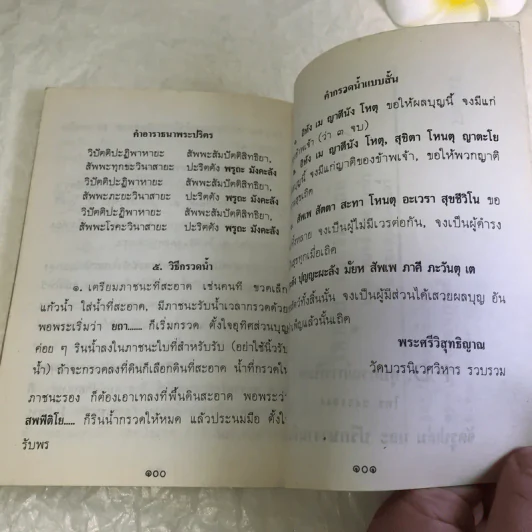 คำอาราธนาพระปริตร
วิปัตติปะฏิพาหายะ สัพพะสัมปัตติสิทธิยา,
สัพพะทุกขะวินาสายะ ปะริตตัง พรูถะ มังคะลัง
วิปัตติปะฏิพาหายะ สัพพะสัมปัตติสิทธิยา,
สัพพะภะยะวินาสายะ ปะริตตัง พรูถะ มังคะลัง
วิปัตติปะฏิพาหายะ สัพพะสัมปัตติสิทธิยา,
สัพพะโรคะวินาสายะ ปะริตตัง พรูถะ มังคะลัง
๕. วิธีกรวดน้ำ
๑. เตรียมภาชนะที่สะอาด เช่นคนที ขวดเล็ก
แก้วน้ำ ใส่น้ำที่สะอาด, มีภาชนะรับน้ำเวลากรวดด้วย
พอพระเริ่มว่า ยถา..... ก็เริ่มกรวด ตั้งใจอุทิศส่วนบุญ
ค่อย ๆ รินน้ำลงในภาชนะใบที่สำหรับรับ (อย่าใช้นิ้วรับ
น้ำ) ถ้าจะกรวดลงที่ดินก็เลือกที่ดินที่สะอาด น้ำที่กรวดใน
ภาชนะรอง ก็ต้องเอาเทลงที่พื้นดินสะอาด พอพระว่า
สพฺพีติโย..... ก็รินน้ำกรวดให้หมด แล้วประนมมือ ตั้งใจ
รับพร
๑๐๐
คำกรวดน้ำแบบสั้น
อิทัง เม ญาตีนัง โหตุ ขอให้ผลบุญนี้ จงมีแก่
ข้าพเจ้า (ว่า ๓ จบ)
อิทัง เม ญาตีนัง โหตุ, สุขิตา โหนตุ ญาตะโย
บุญนี้ จงมีแก่ญาติของข้าพเจ้า, ขอให้พวกญาติ
สุขเถิด
สัพเพ สัตตา สะทา โหนตุ อะเวรา สุขชีวิโน ขอ
ทั้งหลาย จงเป็นผู้ไม่มีเวรต่อกัน, จงเป็นผู้ดำรง
สุขทุกเมื่อเถิด
ปุญญะผะลัง มัยหัง สัพเพ ภาคี ภะวันตุ เต
สัตว์ทั้งสิ้นนั้น จงเป็นผู้มีส่วนได้เสวยผลบุญ อัน
แล้วนั้นเถิด
พระศรีวิสุทธิญาณ
วัดบวรนิเวศวิหาร รวบรวม
๑๐๑